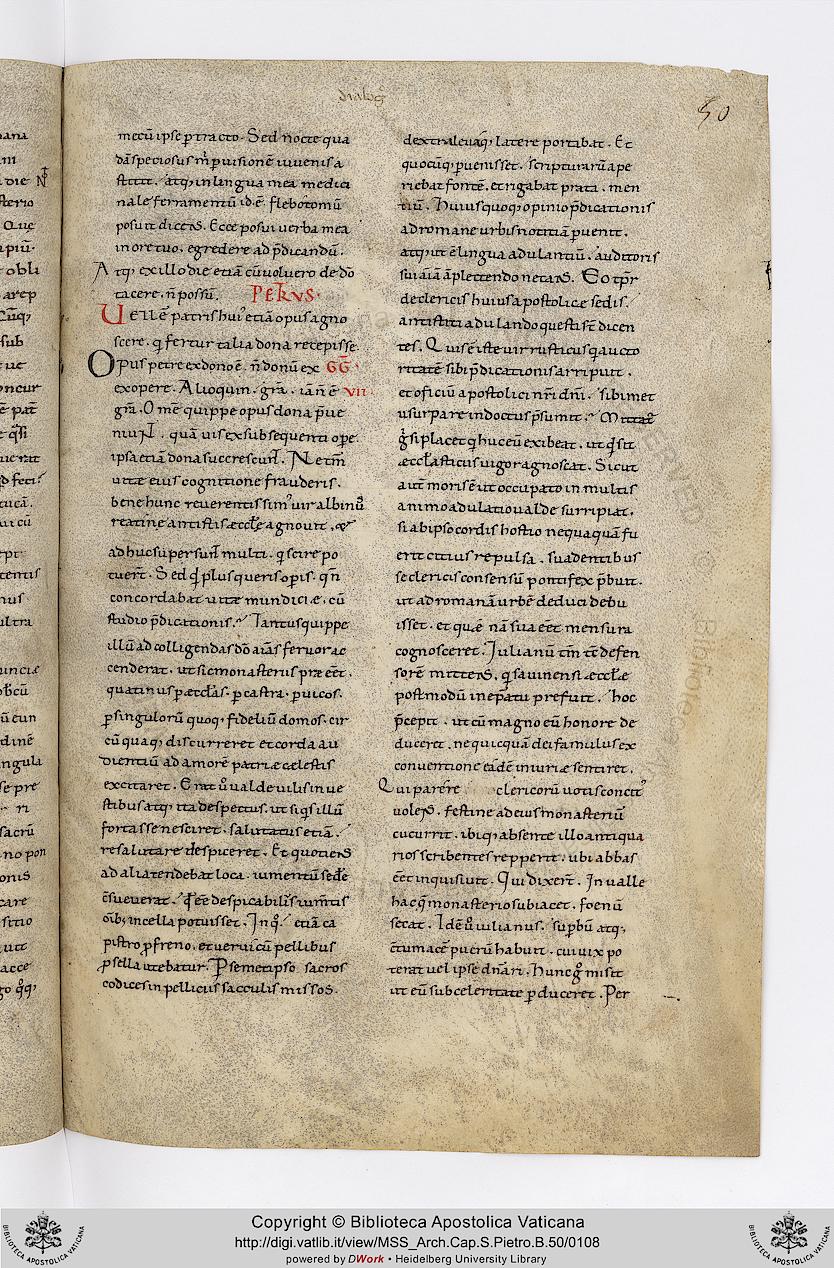 dialoḡ
50
mecū ipse ꝑtracto. Sed nocte qua
dā speciosus m̄ ꝑ uisionē iuuenis a
stitit. atq; in lingua mea medici
nale ferramentū id ē flebotomū
posuit dicens. Ecce posui uerba mea
in ore tuo. egredere ad p̄dicandū.
Atq; ex illo die etiā cū uoluero de dō
tacere. n̄ possū. PETRVS.
Uellē patris hui' etiā opus agno
scere. q̄ fertur talia dona recepisse.
Opus petre ex dono ē. n̄ donū ex GḠ.
ex opere. Alioquin. grā. iā n̄ ē VII
grā. Omē quippe opus dona p̄ue
niunt. quāuis ex subsequenti ope
ipsa etiā dona succrescunt. Ne tm̄
uitae eius cognitione frauderis.
bene hunc reuerentissim' uir albinu'
reatine antistis æccłe agnouit. &
adhuc supersunt multi. q̄ scire po
tuert̄. Sed qd̄ plus queris opis. qn̄
concordabat uitae mundiciæ. cū
studio p̄dicationis. Tantus quippe
illū ad colligendas dō aīas feruor ac
cenderat. ut sic monasteriis præeēt.
quatinus ꝑ æccłas. ꝑ castra. ꝑ uicos.
ꝑ singulorū quoq; fideliū domos. cir
cūquaq; discurreret et corda au
dientiū ad amorē patriæ cælestis
excitaret. Erat ū ualde uilis in ue
stibus atq; ita despectus. ut si q̄s illū
fortasse nesciret. salutatus etiā.
resalutare despiceret. Et quotiens
ad alia tendebat loca. iumentū sedē
c̄sueuerat. qd̄ eē despicabilis iumtis
oīb; in cella potuisset. In q̊ etiā ca
pistro ꝓ freno. et ueruicū pellibus
ꝓ sella utebatur. Ꝑ semetipsō sacros
codices in pelliciis sacculis missos.
dextra leuaq; latere portabat. Et
quocūq; ꝑuenisset. scripturarū ape
riebat fontē. et rigabat prata. men
tiū. Huius quoq; opinio p̄dicationis
ad romane urbis notitiā ꝑuenit.
atq; ut ē lingua adulantiū. auditoris
sui aīā āplectendo necans. Eo tp̄r
de clericis huius apostolicæ sedis.
antistiti adulando questi st̄ dicen
tes. Quis ē iste uir rusticus q̄ aucto
ritatē sibi p̄dicationis arripuit.
et oficiū apostolici nr̄i dn̄i. sibimet
usurpare indoctus p̄sumit. Mittat̄
g̊ si placet q̄ huc eū exibeat. ut q̄ sit
æccłasticus uigor agnoscat. Sicut
aut̄ moris ē ut occupato in multis
animo adulatio ualde surripiat.
si ab ipso cordis hostio nequaquā fu
erit citius repulsa. suadentibus
se clericis consensū pontifex p̄buit.
ut ad romanā urbē deduci debu
isset. et quæ nā sua eēt mensura
cognosceret. Julianū tm̄ tē defen
sorē mittens. q̄ sauinensi æccłæ
postmodū in ep̄atu prefuit. hoc
p̄cepit. ut cū magno eū honore de
duceret. ne quicquā dei famulus ex
conuentione eadē iniuriæ sentiret.
Qui parere clericorū uotis concit'
uolens. festine ad eius monasteriū
cucurrit. ibiq; absente illo antiqua
rios scribentes repperit. ubi abbas
eēt inquisiuit. Qui dixert̄. In ualle
hac q̄ monasterio subiacet. foenū
secat. Idē ū iulianus. supbū atq;
c̄tumacē puerū habuit. cui uix po
terat uel ipse dn̄ari. Hunc g̊ misit
ut eū sub celeritate ꝑduceret. Per
Copyright © Biblioteca Apostolica Vaticana
http://digi.vatlib.it/view/MSS_Arch.Cap.S.Pietro.B.50/0108
powered by DWork • Heidelberg University Library